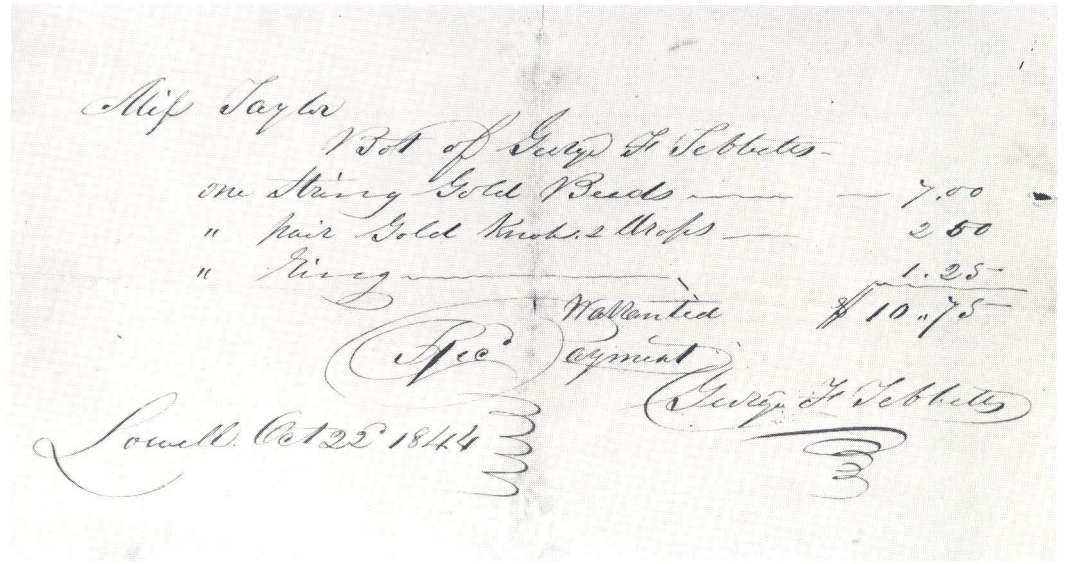 Miss Taylor
Bot of George F Tebbetts
one String Gold Beads — — 7.00
" pair Gold Knobs & Drops — 2 50
" Ring — 1.25
Warranted $10.75
Rec Payment
George F Tebbetts
Lowell. Oct 22d 1844